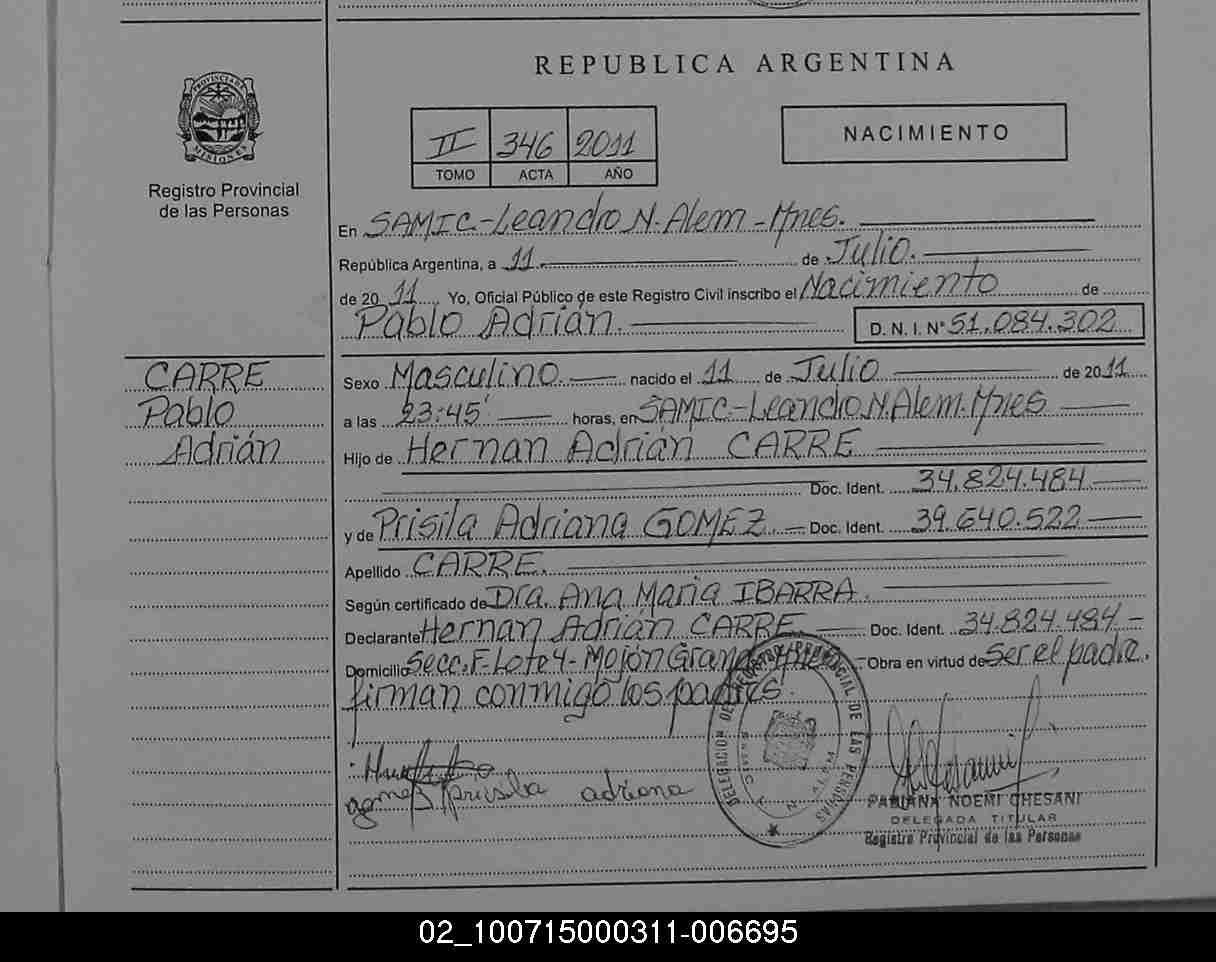 REPUBLICA ARGENTINA
PROVINCIA DE
MISIONES
Registro Provincial
de las Personas
II 346 2011
TOMO ACTA AÑO
NACIMIENTO
En SAMIC-Leandro N. Alem-Mnes.
República Argentina, a 11 de Julio.
de 20 11 Yo, Oficial Público de este Registro Civil inscribo el Nacimiento de
Pablo Adrián. D. N. I. N° 51.084.302
CARRE
Pablo
Adrián
Sexo Masculino. nacido el 11 de Julio de 2011
a las 23:45' horas, en SAMIC.-Leandro N. Alem. Mnes
Hijo de Hernan Adrián CARRE
Doc. Ident. 34.824.484
y de Prisila Adriana GOMEZ. Doc. Ident. 39.640.522
Apellido CARRE.
Según certificado de Dra. Ana Maria IBARRA.
Declarante Hernan Adrián CARRE. Doc. Ident. 34.824.484
Domicilio Secc. F-Lote 4-Mojón Grande Obra en virtud de Ser el padre.
firman conmigo los padres.
gomes prisila adriana
DELEGACION DEL REGISTRO PROVINCIAL DE LAS PERSONAS
N. ALEM
FABIANA NOEMI CHESANI
DELEGADA TITULAR
Registro Provincial de las Personas
02_100715000311-006695